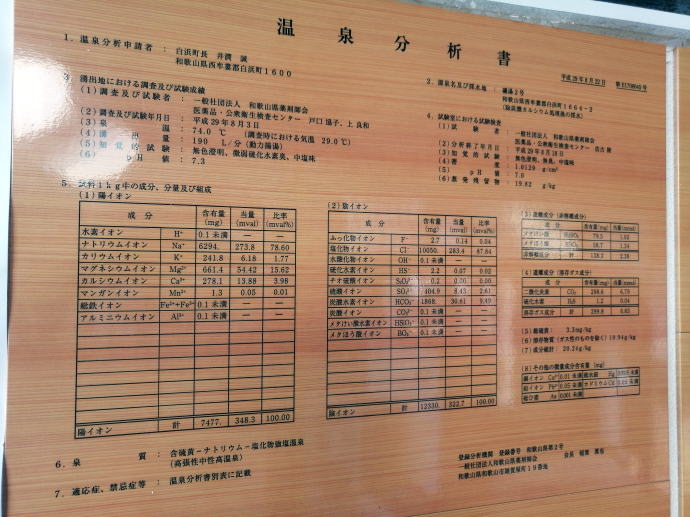 温泉分析書
平成29年8月22日 第
1. 温泉分析申請者 : 白浜町長 井澗 誠
和歌山県西牟婁郡白浜町1600
2. 源泉名及び採水地 : 礦湯2号
和歌山県西牟婁郡白浜町1664-2
3. 湧出地における調査及び試験成績
(1) 調査及び試験者 : 一般社団法人 和歌山県薬剤師会
医薬品・公衆衛生検査センター 戸口 協子、上 良和
(2) 調査及び試験年月日 : 平成29年8月3日
(3) 泉温 : 74.0 ℃ (調査時における気温 29.0℃)
(4) 湧出量 : 190 L/分 (動力揚湯)
(5) 知覚的試験 : 無色澄明、微弱硫化水素臭、中塩味
(6) pH値 : 7.3
4. 試験室における試験検査
(1) 試験者 : 一般社団法人 和歌山県薬剤師会
医薬品・公衆衛生検査センター
(2) 分析終了年月日 : 平成29年8月18日
(3) 知覚的試験 : 無色澄明、無臭、中塩味
(4) 密度 : 1.0129 g/cm³
(5) pH値 : 7.0
(6) 蒸発残留物 : 19.82 g/kg
5. 試料1kg中の成分、分量及び組成
(1) 陽イオン
成分 含有量(mg) 当量(mval) 比率(mval%)
水素イオン H⁺ 0.1 未満 — —
ナトリウムイオン Na⁺ 6294. 273.8 78.60
カリウムイオン K⁺ 241.8 6.18 1.77
マグネシウムイオン Mg²⁺ 661.4 54.42 15.62
カルシウムイオン Ca²⁺ 278.1 13.88 3.98
マンガンイオン Mn²⁺ 1.3 0.05 0.01
総鉄イオン Fe²⁺+Fe³⁺ 0.1 未満 — —
アルミニウムイオン Al³⁺ 0.1 未満 — —
陽イオン 計 7477. 348.3 100.00
(2) 陰イオン
成分 含有量(mg) 当量(mval) 比率(mval%)
ふっ化物イオン F⁻ 2.7 0.14 0.04
塩化物イオン Cl⁻ 10050. 283.4 87.84
水酸化物イオン OH⁻ 0.1 未満 — —
硫化水素イオン HS⁻ 2.2 0.07 0.02
チオ硫酸イオン S₂O₃²⁻ 0.2 0.00 0.00
硫酸イオン SO₄²⁻ 404.9 8.43 2.61
炭酸水素イオン HCO₃⁻ 1868. 30.61 9.49
炭酸イオン CO₃²⁻ 0.1 未満 — —
メタけい酸水素イオン HSiO₃⁻ 0.1 未満 — —
メタほう酸イオン BO₂⁻ 0.1 未満 — —
陰イオン 計 12330. 322.7 100.00
(3) 遊離成分 (非解離成分)
成分
メタけい酸 79.5 1.02
メタほう酸 58.7 1.34
非解離成分 計 138.2 2.36
(4) 遊離成分 (溶存ガス成分)
成分
二酸化炭素 CO₂ 298.6 6.79
硫化水素 H₂S 1.2 0.04
溶存ガス成分 計 299.8 6.83
(5) 総硫黄 : 3.3mg/kg
(6) 溶存物質 (ガス性のものを除く) 19.94g/kg
(7) 成分総計 : 20.24g/kg
(8) その他の微量成分含有量 (mg)
銅イオン Cu²⁺ 0.01 未満 総水銀 Hg
鉛イオン Pb²⁺ 0.05 未満 カドミウム Cd
総ひ素 As 0.001 未満
6. 泉質 : 含硫黄-ナトリウム-塩化物強塩温泉
(高張性中性高温泉)
7. 適応症、禁忌症等 : 温泉分析書別表に記載
登録分析機関 登録番号 和歌山県第2号
一般社団法人和歌山県薬剤師会 会長
和歌山県和歌山市雑賀屋町19番地